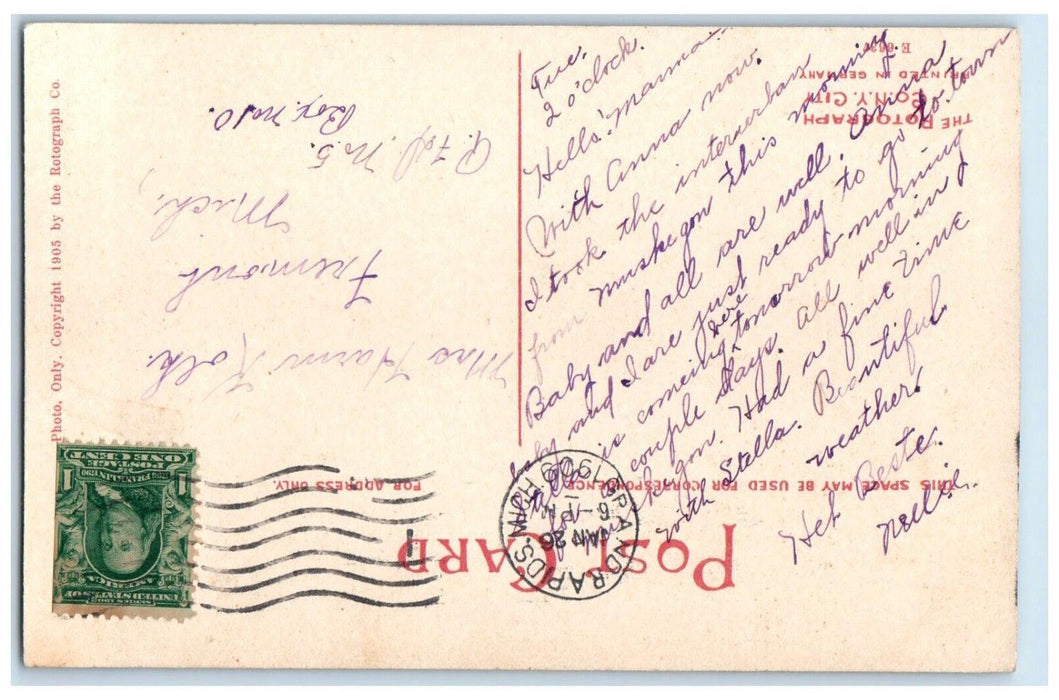 Tue.
2 o'clock.
Hello! Mamma
With Anna now.
I took the interurban
from Muskegon this morning.
Baby and all are well. Anna
baby and I are just ready to go to town
is coming here tomorrow morning
for couple days. All well in
gon. Had a fine time
with Stella. Beautiful
weather!
Het Beste.
Nellie.
Mrs Harm Kolk.
Fremont
Mich.,
R.F.D. No 5.
Box. No 10.
POST CARD
THIS SPACE MAY BE USED FOR CORRESPONDENCE.
FOR ADDRESS ONLY.
THE ROTOGRAPH
CO., N.Y. CITY
PRINTED IN GERMANY
Photo. Only. Copyright 1905 by the Rotograph Co.
GRAND RAPIDS, MICH.
JAN 26
6-PM
1
SERIES 1902
UNITED STATES OF
AMERICA
FRANKLIN
POSTAGE
ONE CENT
1 1